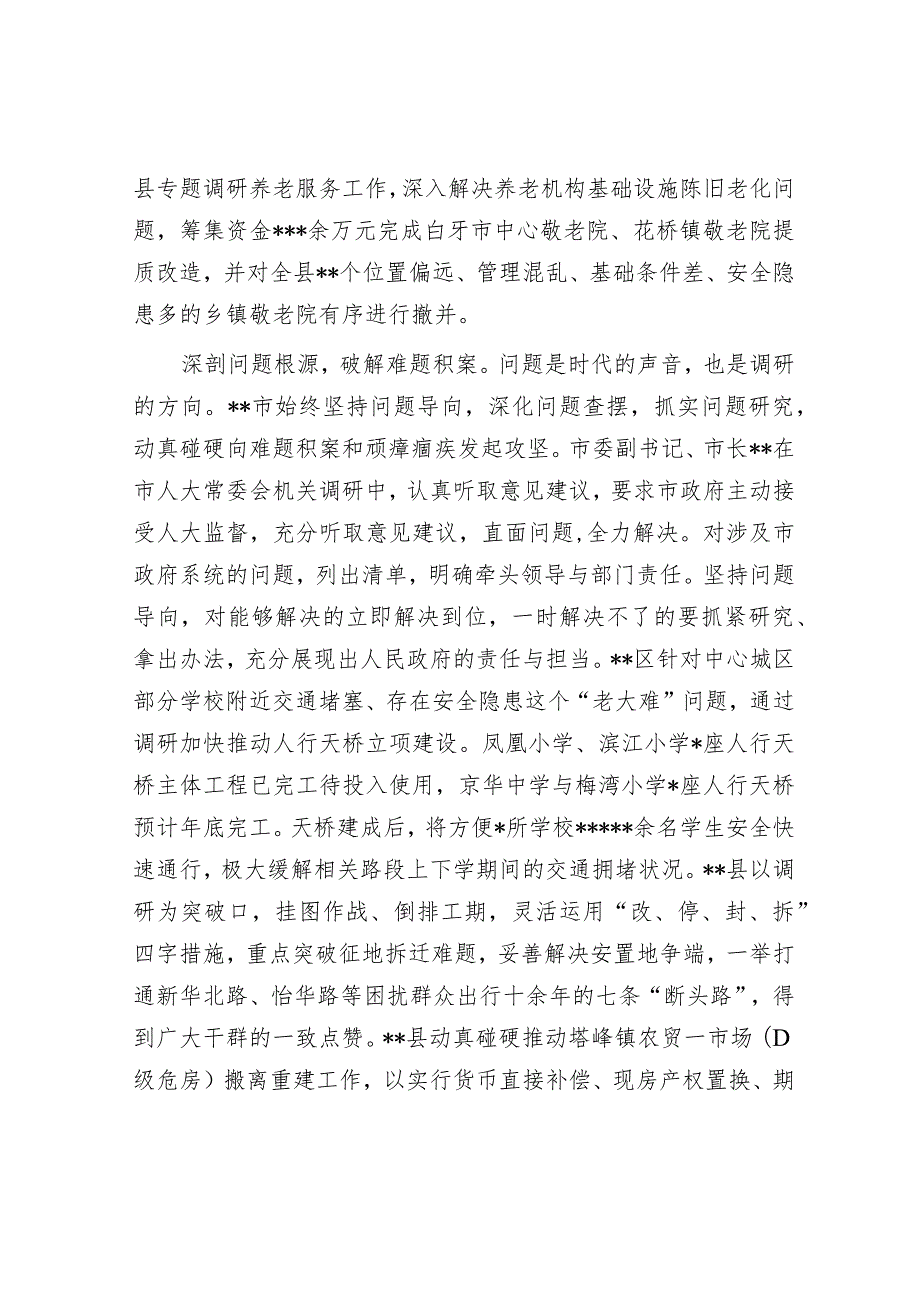 县专题调研养老服务工作，深入解决养老机构基础设施陈旧老化问
题，筹集资金***余万元完成白牙市中心敬老院、花桥镇敬老院提
质改造，并对全县**个位置偏远、管理混乱、基础条件差、安全隐
患多的乡镇敬老院有序进行撤并。
深剖问题根源，破解难题积案。问题是时代的声音，也是调研
的方向。**市始终坚持问题导向，深化问题查摆，抓实问题研究，
动真碰硬向难题积案和顽瘴痼疾发起攻坚。市委副书记、市长**在
市人大常委会机关调研中，认真听取意见建议，要求市政府主动接
受人大监督，充分听取意见建议，直面问题,全力解决。对涉及市
政府系统的问题，列出清单，明确牵头领导与部门责任。坚持问题
导向，对能够解决的立即解决到位，一时解决不了的要抓紧研究、
拿出办法，充分展现出人民政府的责任与担当。**区针对中心城区
部分学校附近交通堵塞、存在安全隐患这个“老大难”问题，通过
调研加快推动人行天桥立项建设。凤凰小学、滨江小学*座人行天
桥主体工程已完工待投入使用，京华中学与梅湾小学*座人行天桥
预计年底完工。天桥建成后，将方便*所学校*****余名学生安全快
速通行，极大缓解相关路段上下学期间的交通拥堵状况。**县以调
研为突破口，挂图作战、倒排工期，灵活运用“改、停、封、拆”
四字措施，重点突破征地拆迁难题，妥善解决安置地争端，一举打
通新华北路、怡华路等困扰群众出行十余年的七条“断头路”，得
到广大干群的一致点赞。**县动真碰硬推动塔峰镇农贸一市场（D
级危房）搬离重建工作，以实行货币直接补偿、现房产权置换、期